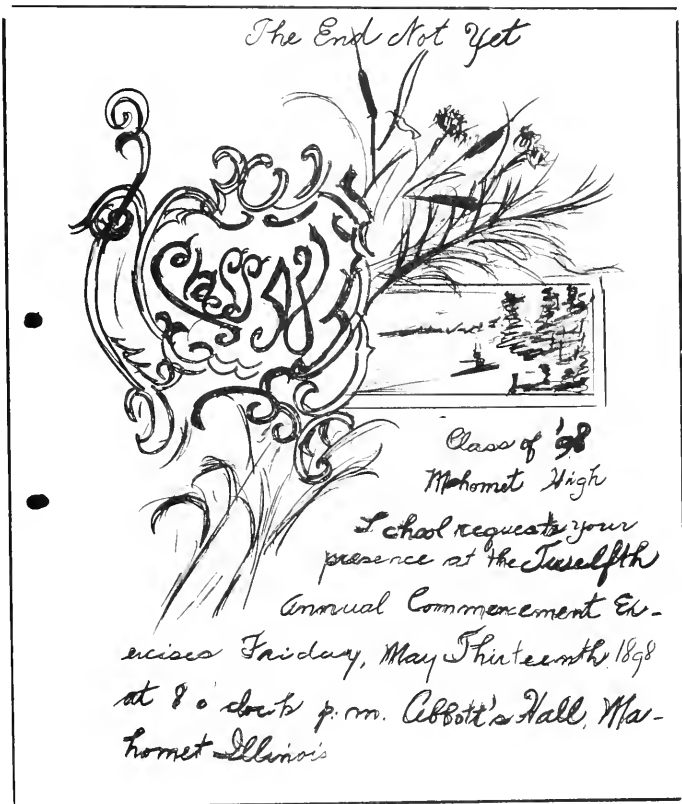 The End Not Yet
Class 98
Class of '98
Mahomet High
School requests your
presence at the Twelfth
Annual Commencement Ex-
ercises Friday, May Thirteenth 1898
at 8 o'clock p.m. Abbott's Hall, Ma-
homet Illinois